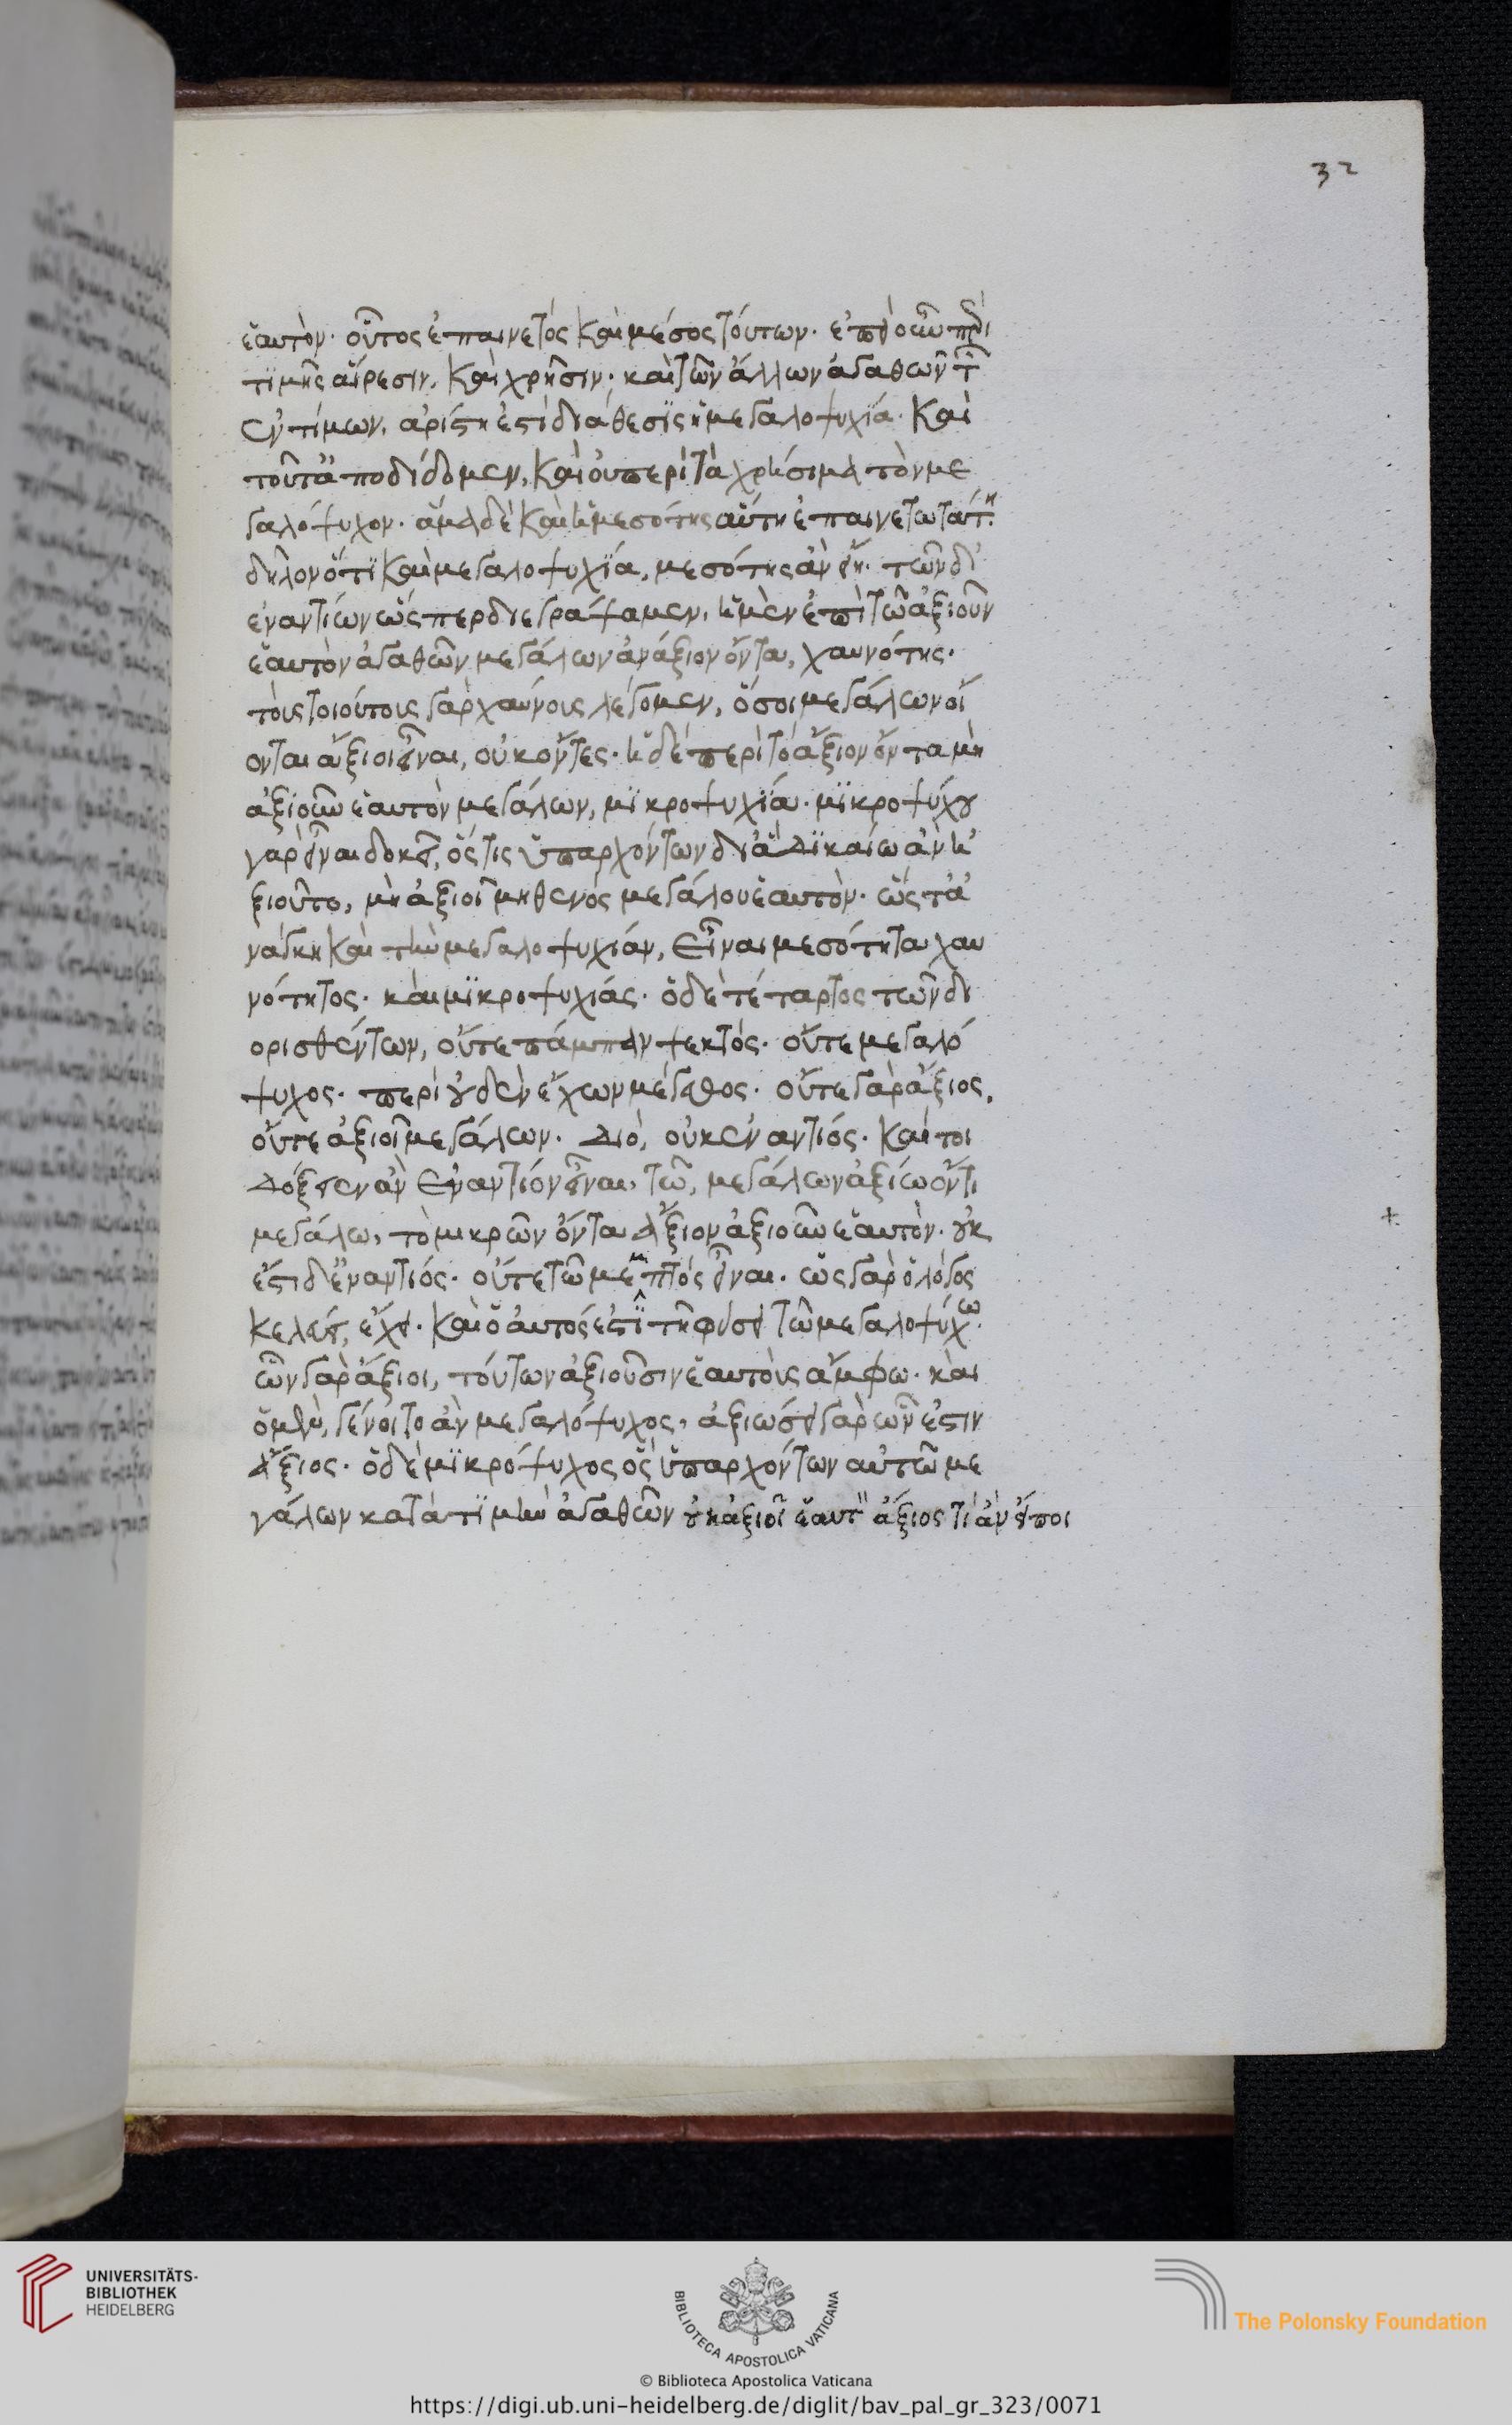 32
ἑαυτὸν· οὗτος ἐπαινετὸς καὶ μέσος τούτων· ἐπεὶ οὖν περὶ
τιμῆς αἵρεσιν, καὶ χρῆσιν· καὶ τῶν ἄλλων ἀγαθῶν τῶν
ἐντίμων, ἀρίστη ἐστὶ διάθεσις ἡ μεγαλοψυχία. καὶ
τοῦτ' ἀποδίδομεν, καὶ οὐ περὶ τὰ χρήσιμα τὸν με
γαλόψυχον. ἅμα δὲ καὶ ἡ μεσότης αὕτη ἐπαινετωτάτη.
δῆλον ὅτι καὶ μεγαλοψυχία, μεσότης ἂν εἴη. τῶν δ'
ἐναντίων ὥσπερ διεγράψαμεν, ἡ μὲν ἐπὶ τῶ ἀξιοῦν
ἑαυτὸν ἀγαθῶν μεγάλων ἀνάξιον ὄντα, χαυνότης.
τοὺς τοιούτους γὰρ χαύνους λέγομεν, ὅσοι μεγάλων οἴ
ονται ἄξιοι εἶναι, οὐκ ὄντες. ἡ δὲ περὶ τὸ ἄξιον ὄντα μὴ
ἀξιοῦν ἑαυτὸν μεγάλων, μικροψυχία. μικροψύχου
γὰρ εἶναι δοκεῖ, ὅστις ὑπαρχόντων δι' ἃ δικαίως ἂν ἠ
ξιοῦτο, μὴ ἀξιοῖ μηθενὸς μεγάλου ἑαυτὸν. ὥστ' ἀ
νάγκη καὶ τὴν μεγαλοψυχίαν, εἶναι μεσότητα χαυ
νότητος. καὶ μικροψυχίας. ὁ δὲ τέταρτος τῶν δι
ορισθέντων, οὔτε πάμπαν ψεκτός. οὔτε μεγαλό
ψυχος. περὶ οὐδὲν ἔχων μέγεθος. οὔτε γὰρ ἄξιος,
οὔτε ἀξιοῖ μεγάλων. διὸ, οὐκ ἐναντίος. καίτοι
δόξειεν ἂν ἐναντίον εἶναι, τῶ, μεγάλων ἀξίω ὄντι
μεγάλω, τὸ μικρῶν ὄντα ἄξιον ἀξιοῦν ἑαυτὸν. οὐκ
ἔστι δ' ἐναντίος. οὔτε τῶ μεμπτὸς εἶναι. ὡς γὰρ ὁ λόγος
κελεύει, ἔχει. καὶ ὁ αὐτός ἐστι τῆ φύσει τῶ μεγαλοψύχω.
ὧν γὰρ ἄξιοι, τούτων ἀξιοῦσιν ἑαυτοὺς ἄμφω. καὶ
ὁ μὲν, γένοιτο ἂν μεγαλόψυχος, ἀξιώσει γὰρ ὧν ἐστιν
ἄξιος. ὁ δὲ μικρόψυχος ὃς ὑπαρχόντων αὐτῶ με
γάλων κατὰ τιμὴν ἀγαθῶν οὐκ ἀξιοῖ ἑαυτ ἄξιος τί ἂν εἴποι
UNIVERSITÄTS-
BIBLIOTHEK
HEIDELBERG
BIBLIOTECA APOSTOLICA VATICANA
The Polonsky Foundation
© Biblioteca Apostolica Vaticana
https://digi.ub.uni-heidelberg.de/diglit/bav_pal_gr_323/0071